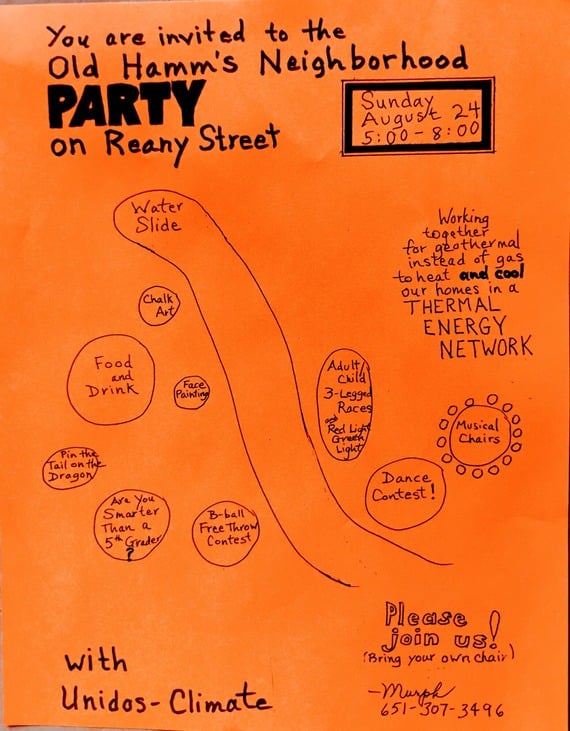 You are invited to the
Old Hamm's Neighborhood
PARTY
on Reany Street
Sunday
August 24
5:00-8:00
Water
Slide
Working
together
for geothermal
instead of gas
to heat and cool
our homes in a
THERMAL
ENERGY
NETWORK
Chalk
Art
Food
and
Drink
Face
Painting
Adult/
Child
3-Legged
Races
and
Red Light
Green
Light
Musical
Chairs
Pin the
Tail on the
Dragon
Dance
Contest!
Are You
Smarter
Than a
5th Grader
?
B-ball
Free Throw
Contest
Please
join us!
(Bring your own chair)
with
Unidos-Climate
-Murph
651-307-3496